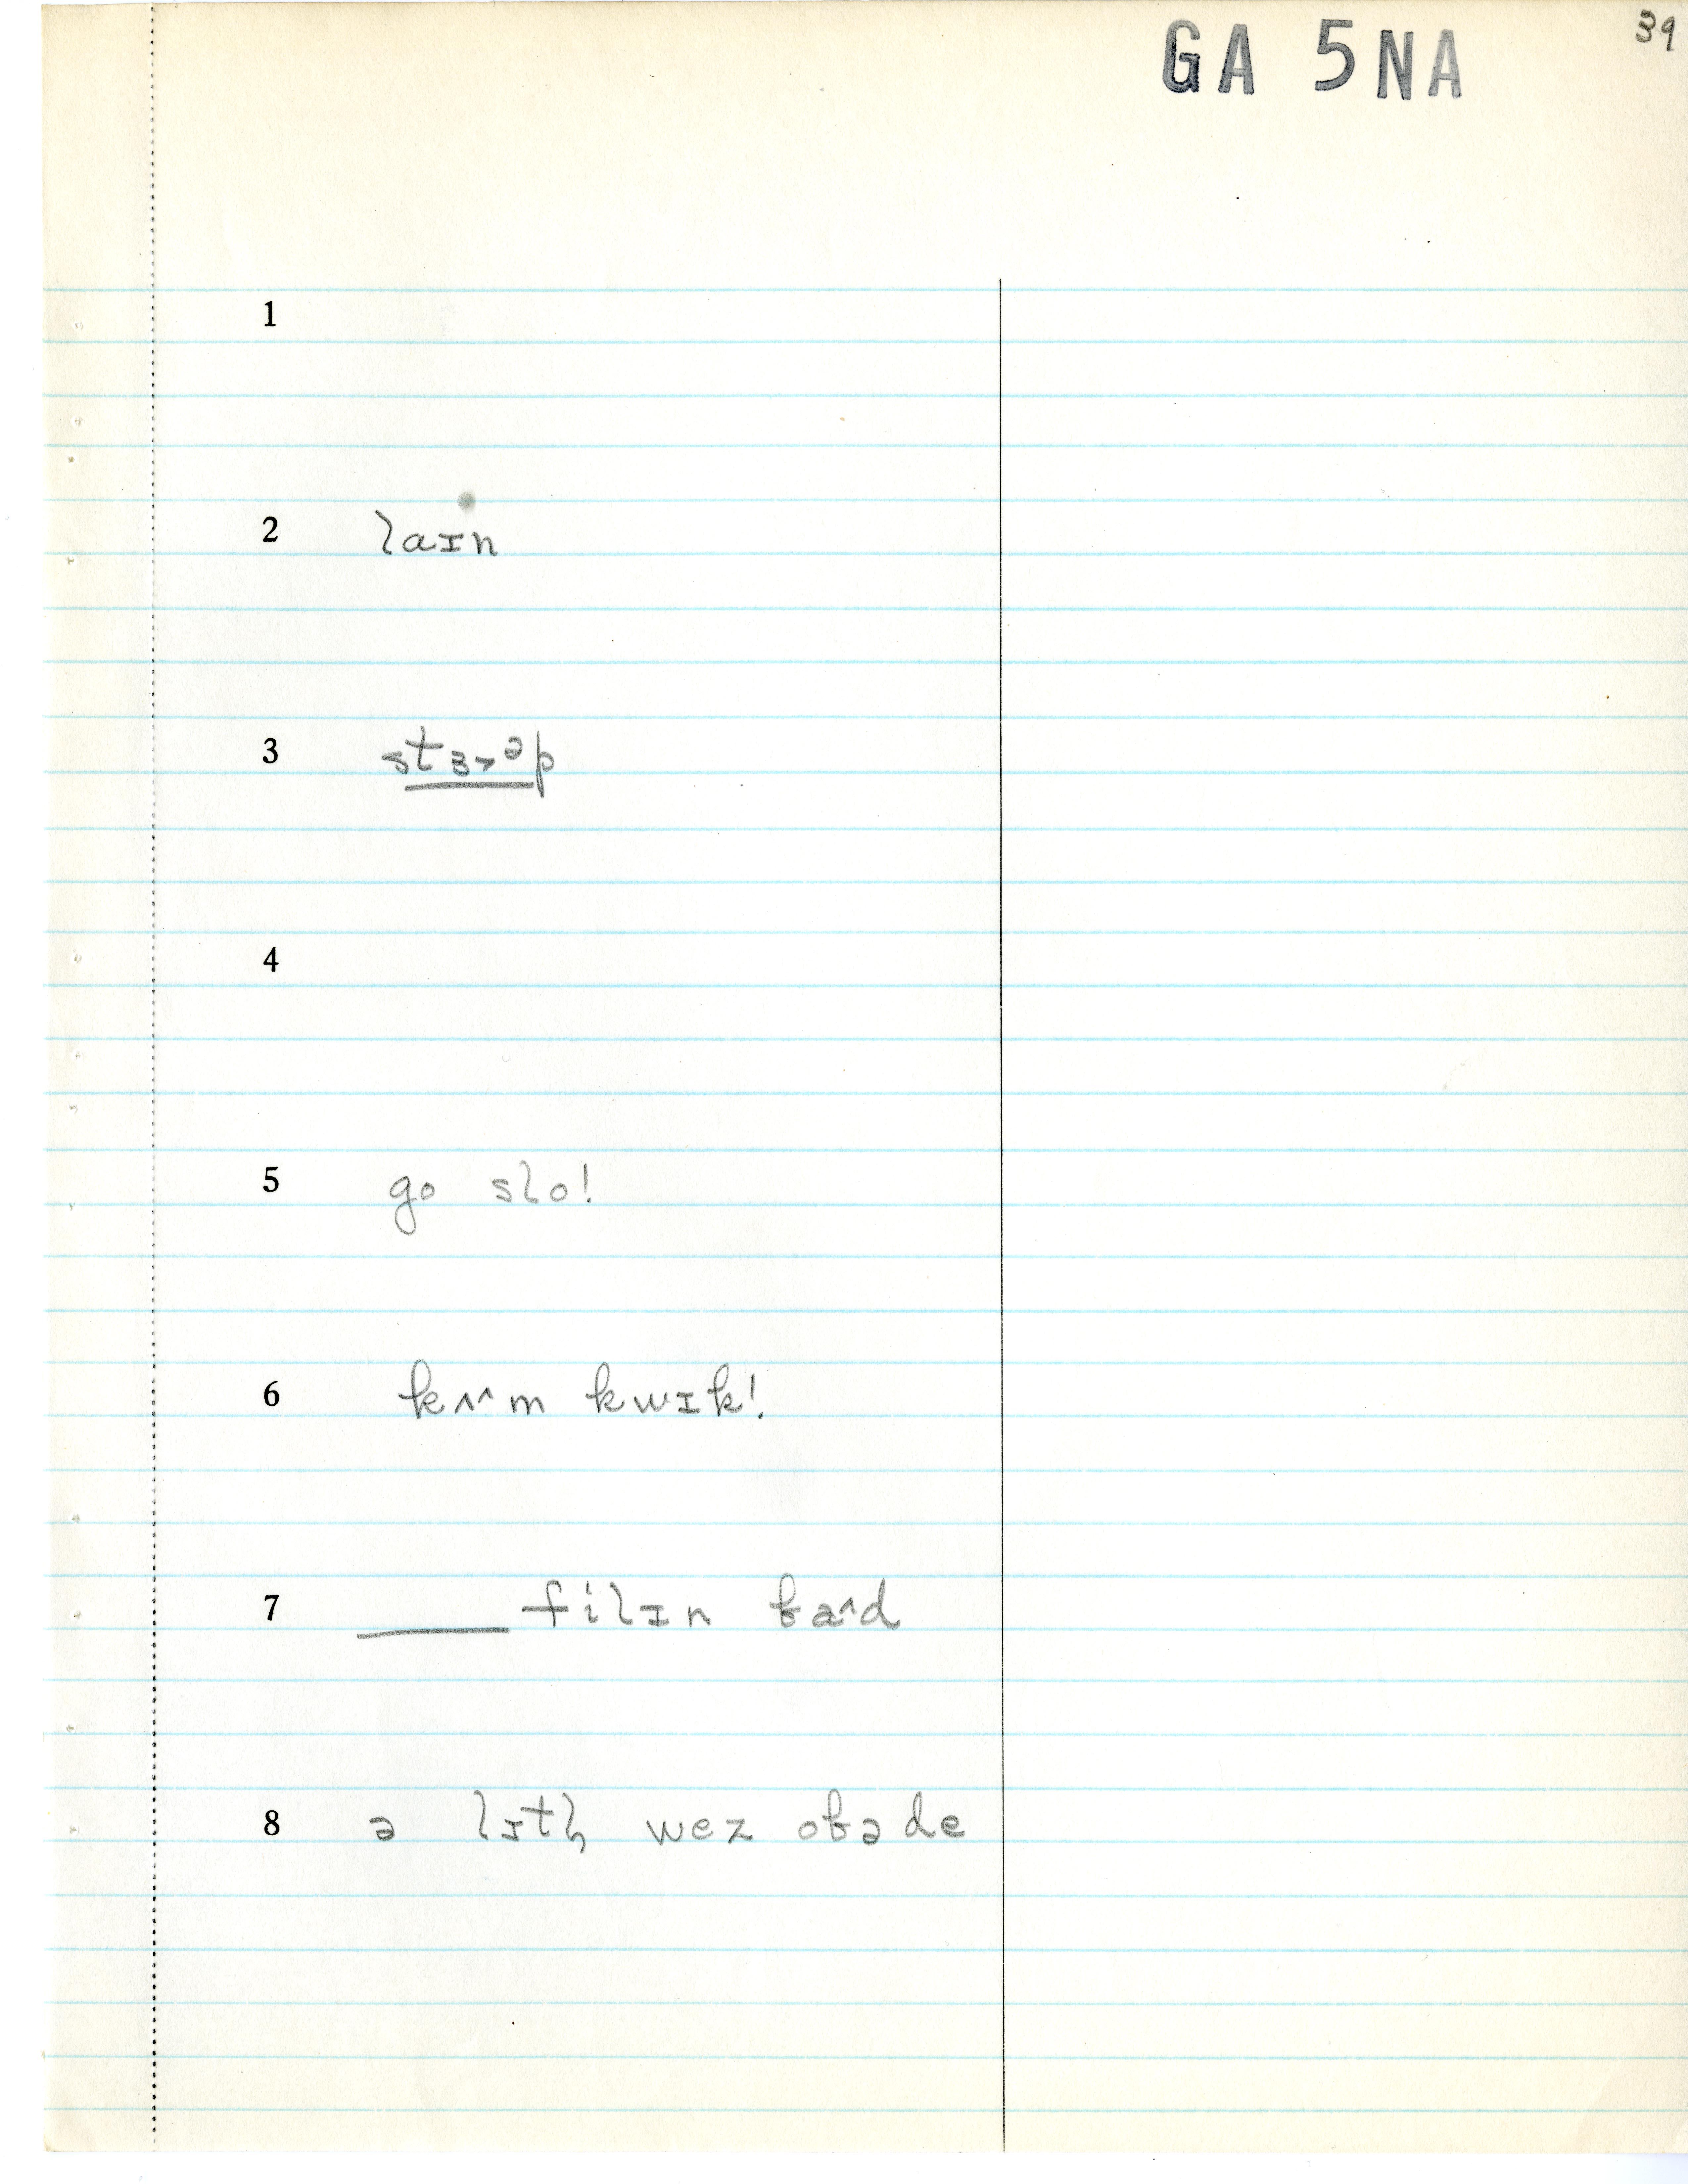 39
GA 5NA
1
2 laɪn
3 stɜ˞əp
4
5 go slo!
6 kʌ^m kwɪk!
7 filɪn ba^d
8 ə lɪtl̩ wez obə de